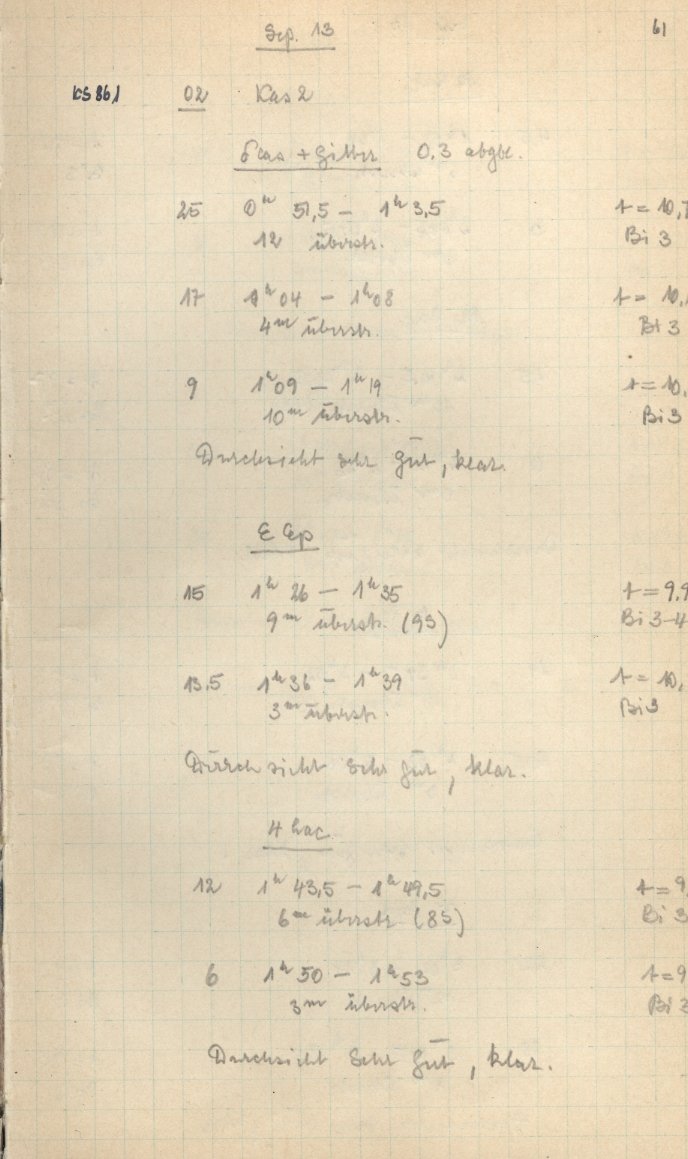 Sep. 13 61
KS 861 02 Kas 2
δ Cas + Gitter 0,3 abgbl.
25 0ʰ 51,5 – 1ʰ 3,5 t = 10,7
12 überstr. Bi 3
17 1ʰ 04 – 1ʰ 08 t = 10,
4ᵐ überstr. Bi 3
9 1ʰ 09 – 1ʰ 19 t = 10,
10ᵐ überstr. Bi 3
Durchsicht sehr gūt, klar.
ε Cep
15 1ʰ 26 – 1ʰ 35 t = 9,9
9ᵐ überstr. (9S) Bi 3-4
13,5 1ʰ 36 – 1ʰ 39 t = 10,
3ᵐ überstr. Bi 3
Dūrchsicht sehr gūt, klar.
4 Lac
12 1ʰ 43,5 – 1ʰ 49,5 t = 9,
6ᵐ überstr. (8S) Bi 3
6 1ʰ 50 – 1ʰ 53 t = 9
3ᵐ überstr. Bi 3
Durchsicht sehr gūt, klar.